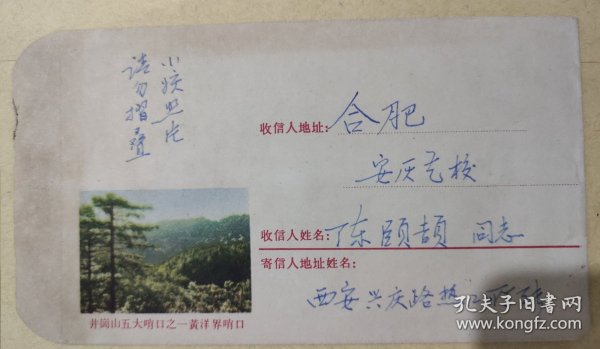 小孩照片
请勿摺叠
收信人地址: 合肥
安庆艺校
收信人姓名: 陈颐颉 同志
寄信人地址姓名:
西安兴庆路
井崗山五大哨口之一黃洋界哨口
孔夫子旧书网
www.kongfz.com